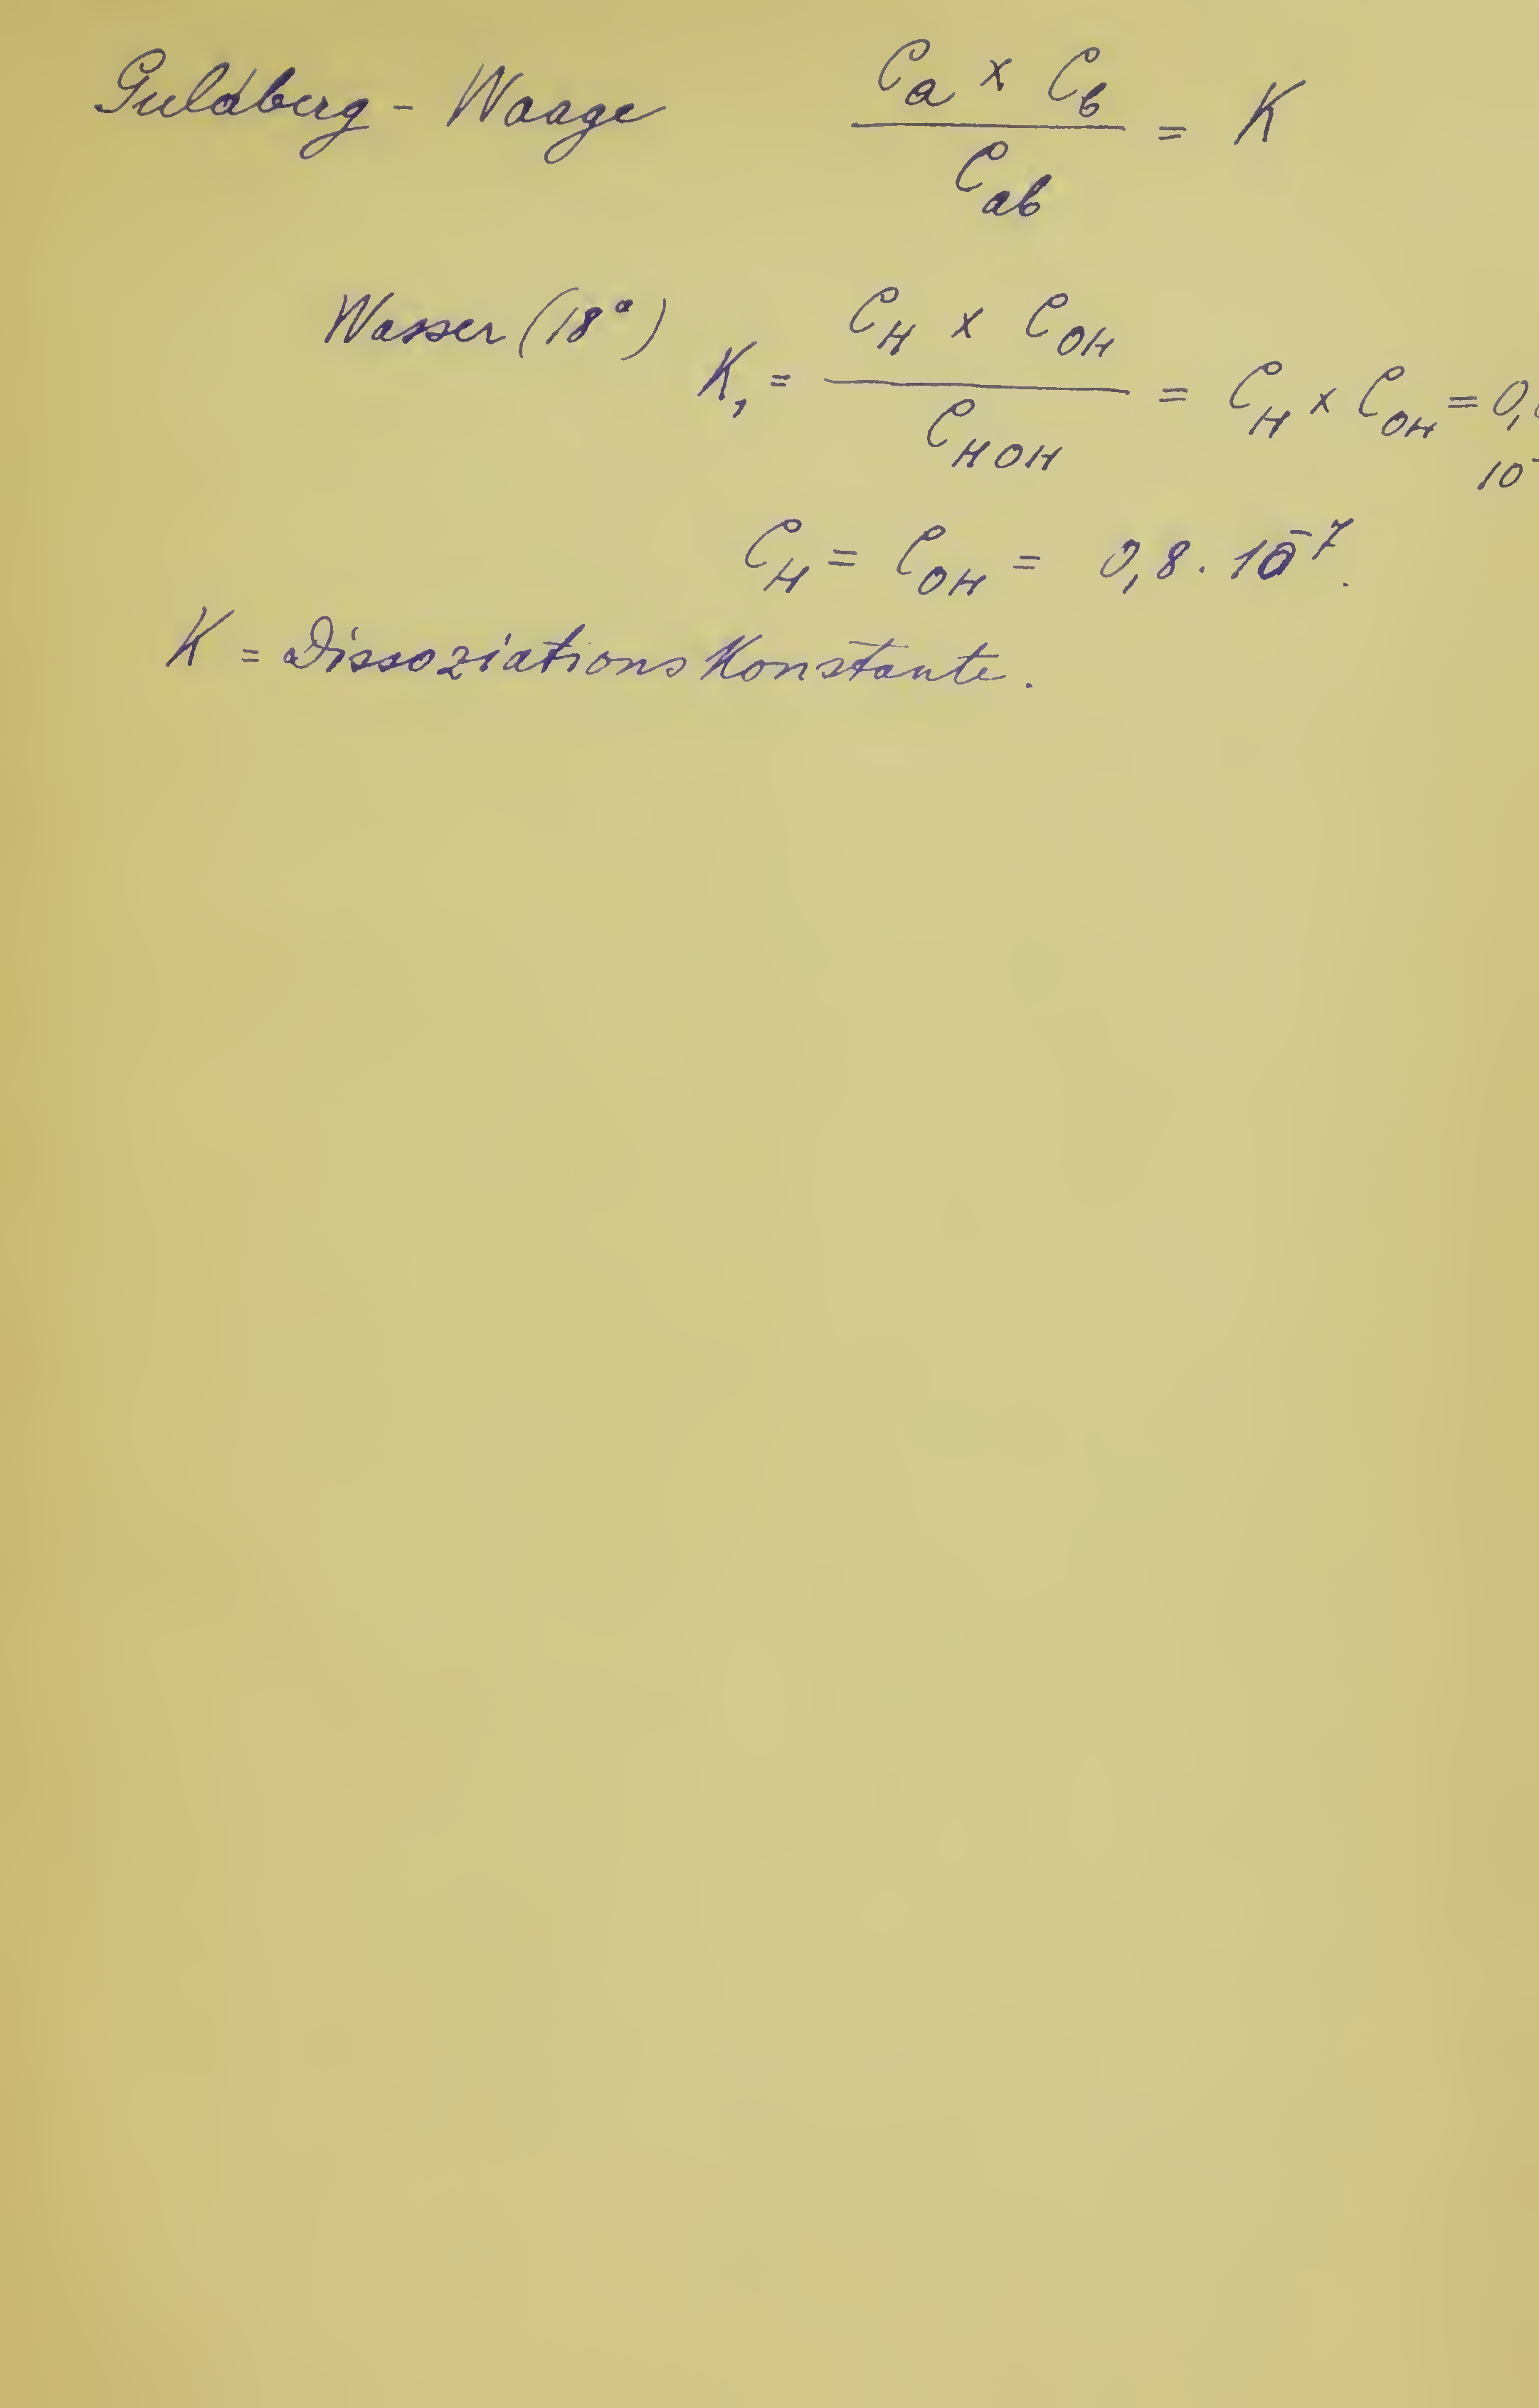 Guldberg - Waage  Ca x Cb / Cab = K
Wasser (18°) K1 = CH x COH / CHOH = CH x COH = 0,
10-
CH = COH = 0,8 . 10-7.
K = Dissoziations Konstante.